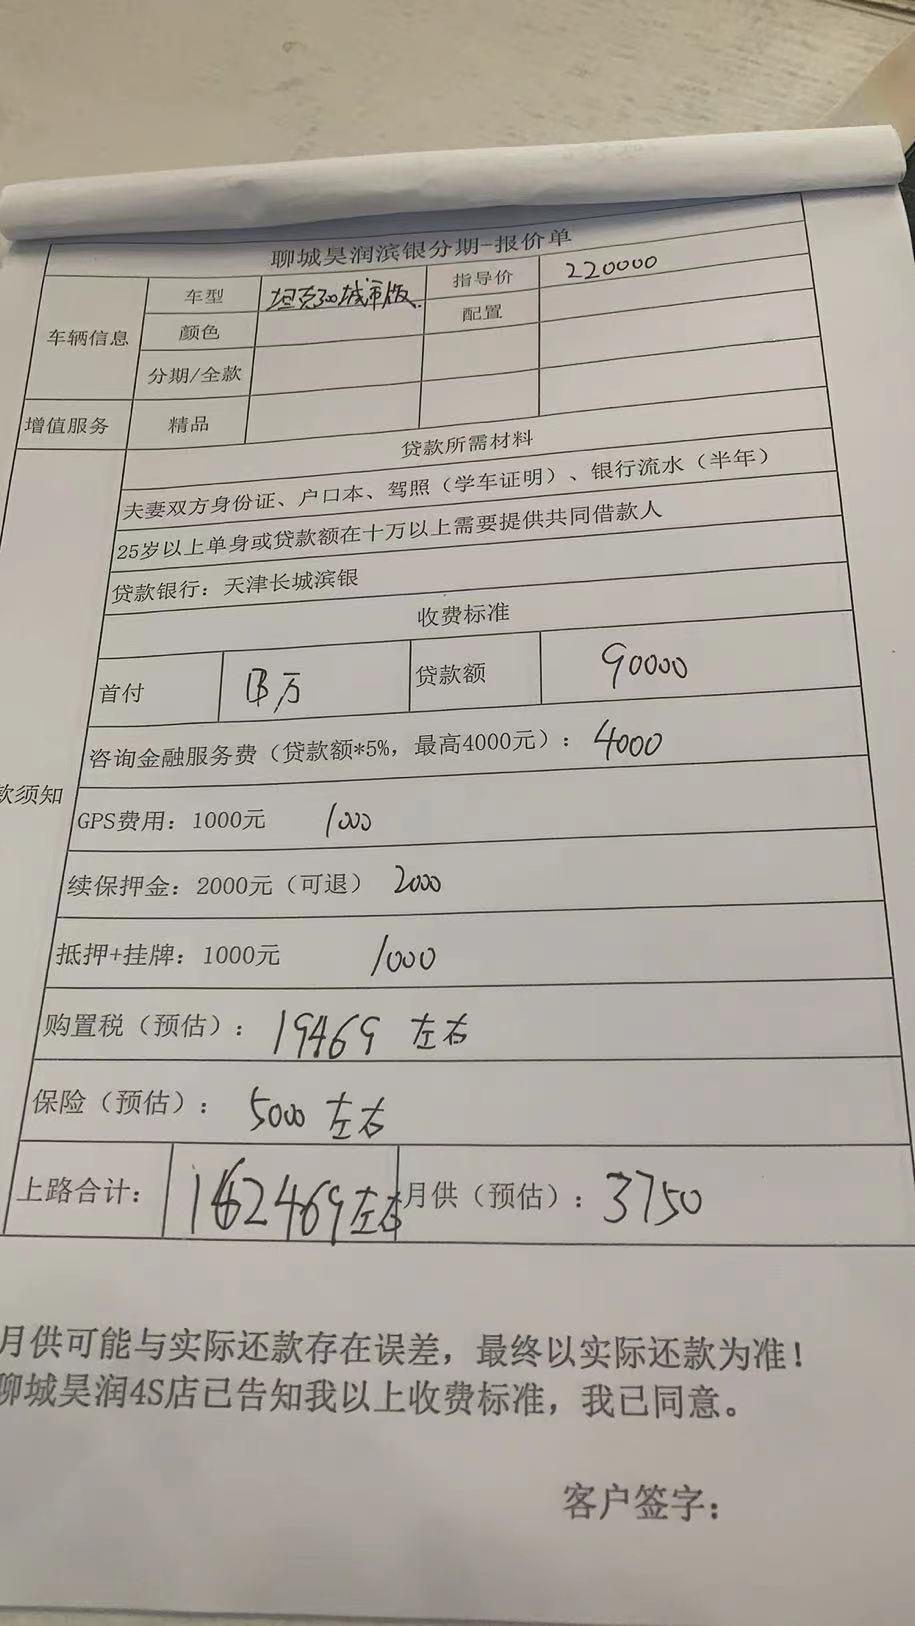 聊城昊润滨银分期-报价单
车辆信息 车型 坦克300城市版. 指导价 220000
颜色 配置
分期/全款
增值服务 精品
贷款所需材料
夫妻双方身份证、户口本、驾照（学车证明）、银行流水（半年）
25岁以上单身或贷款额在十万以上需要提供共同借款人
贷款银行：天津长城滨银
收费标准
首付 13万 贷款额 90000
咨询金融服务费（贷款额*5%，最高4000元）：4000
款须知
GPS费用：1000元 1000
续保押金：2000元（可退） 2000
抵押+挂牌：1000元 1000
购置税（预估）：19469 左右
保险（预估）：5000 左右
上路合计：162469左右 月供（预估）：3750
月供可能与实际还款存在误差，最终以实际还款为准！
聊城昊润4S店已告知我以上收费标准，我已同意。
客户签字：